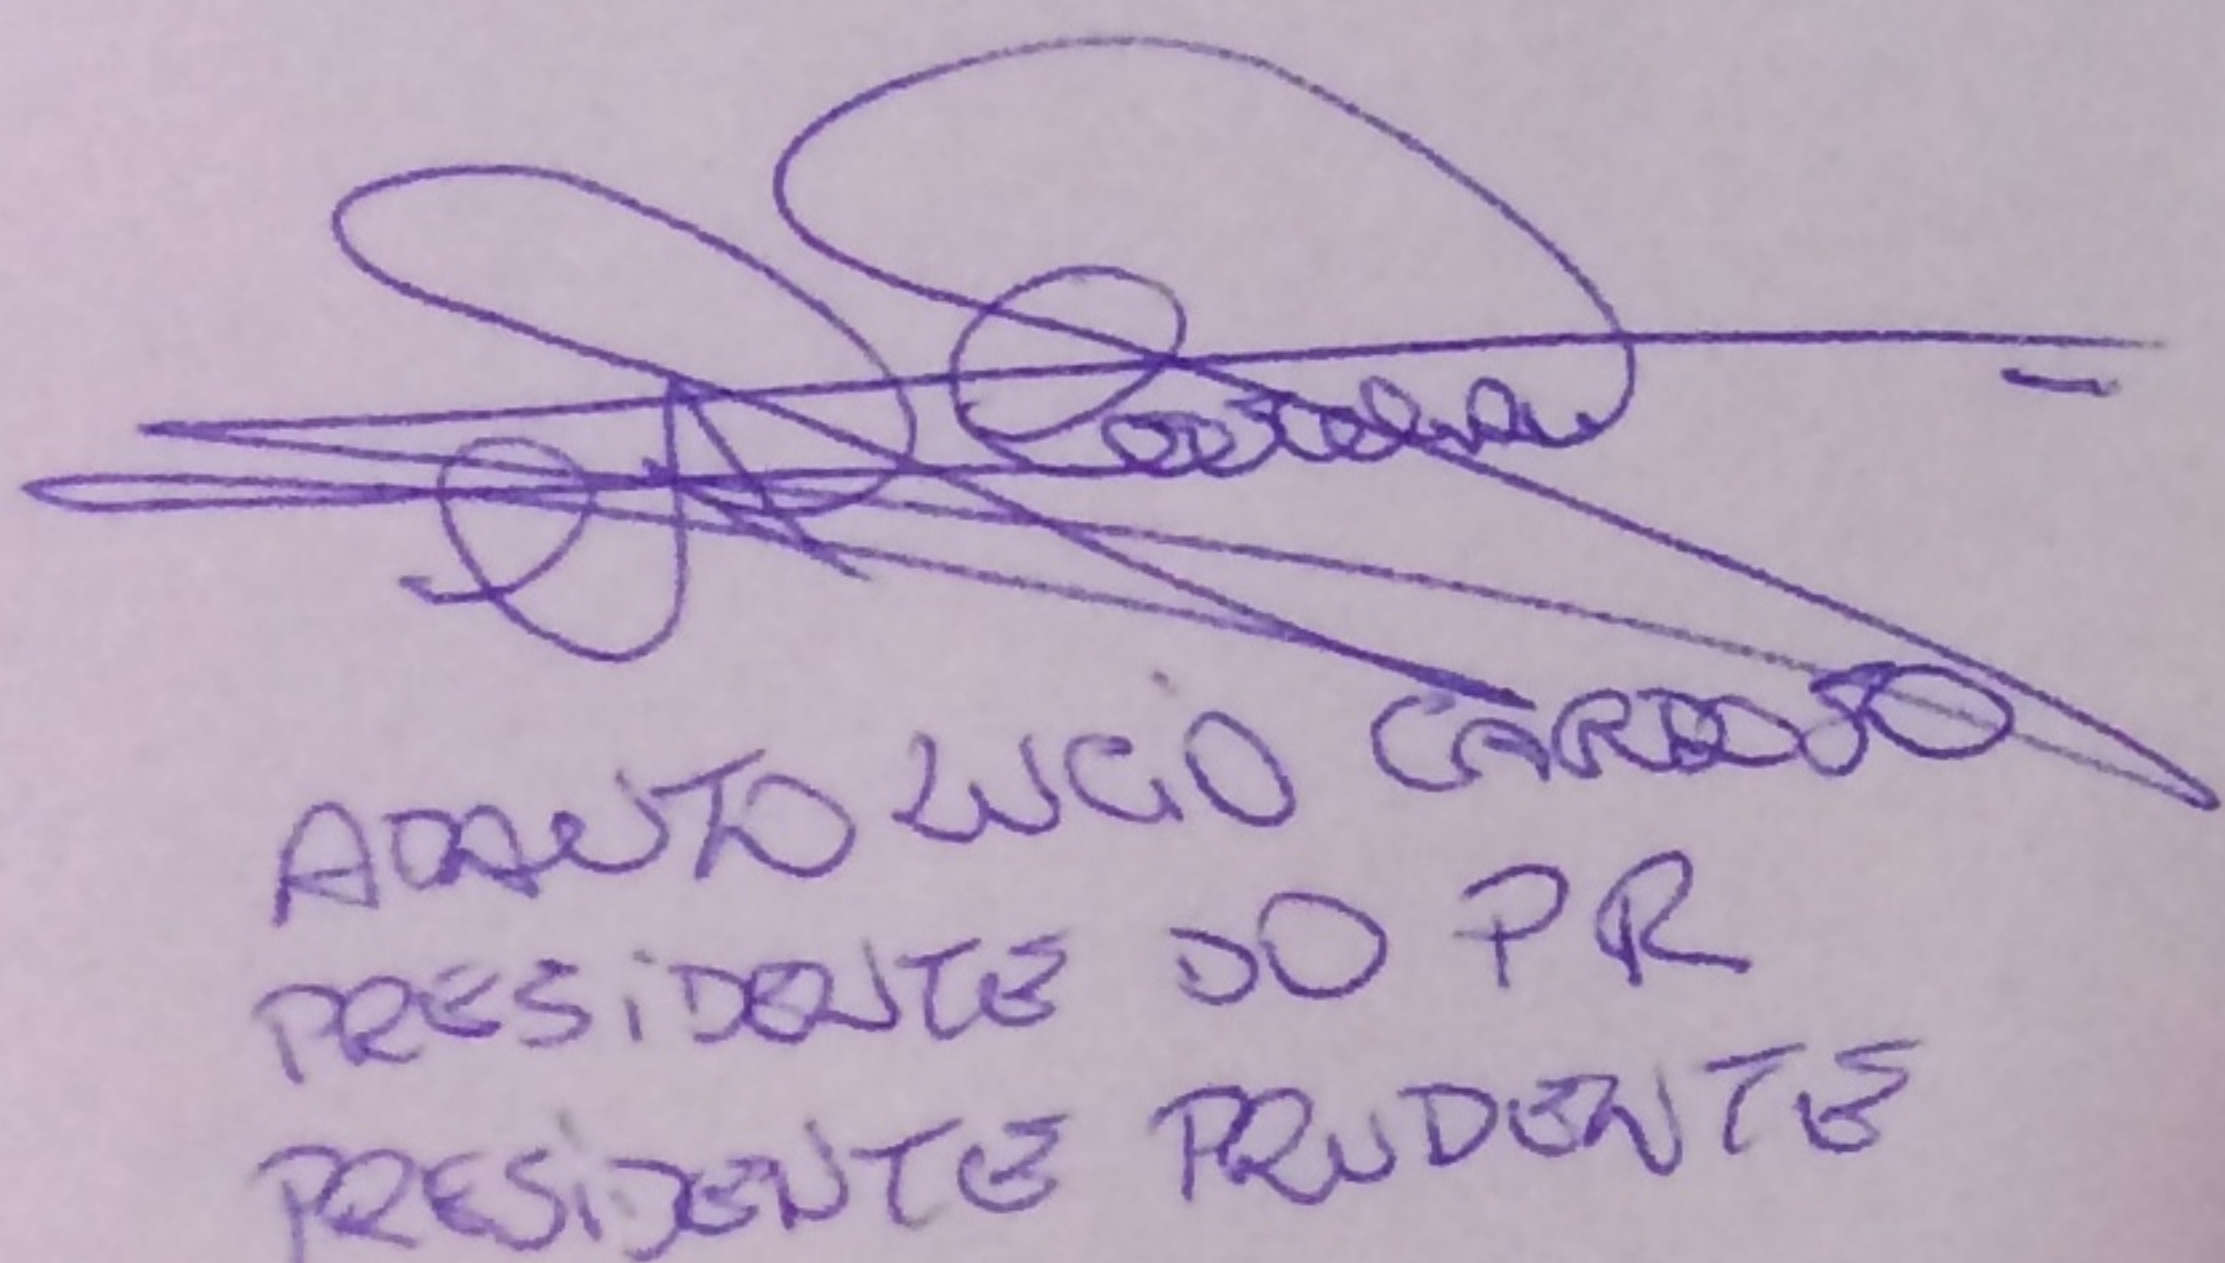 ADAUTO LUCIO CARDOSO
PRESIDENTE DO PR
PRESIDENTE PRUDENTE